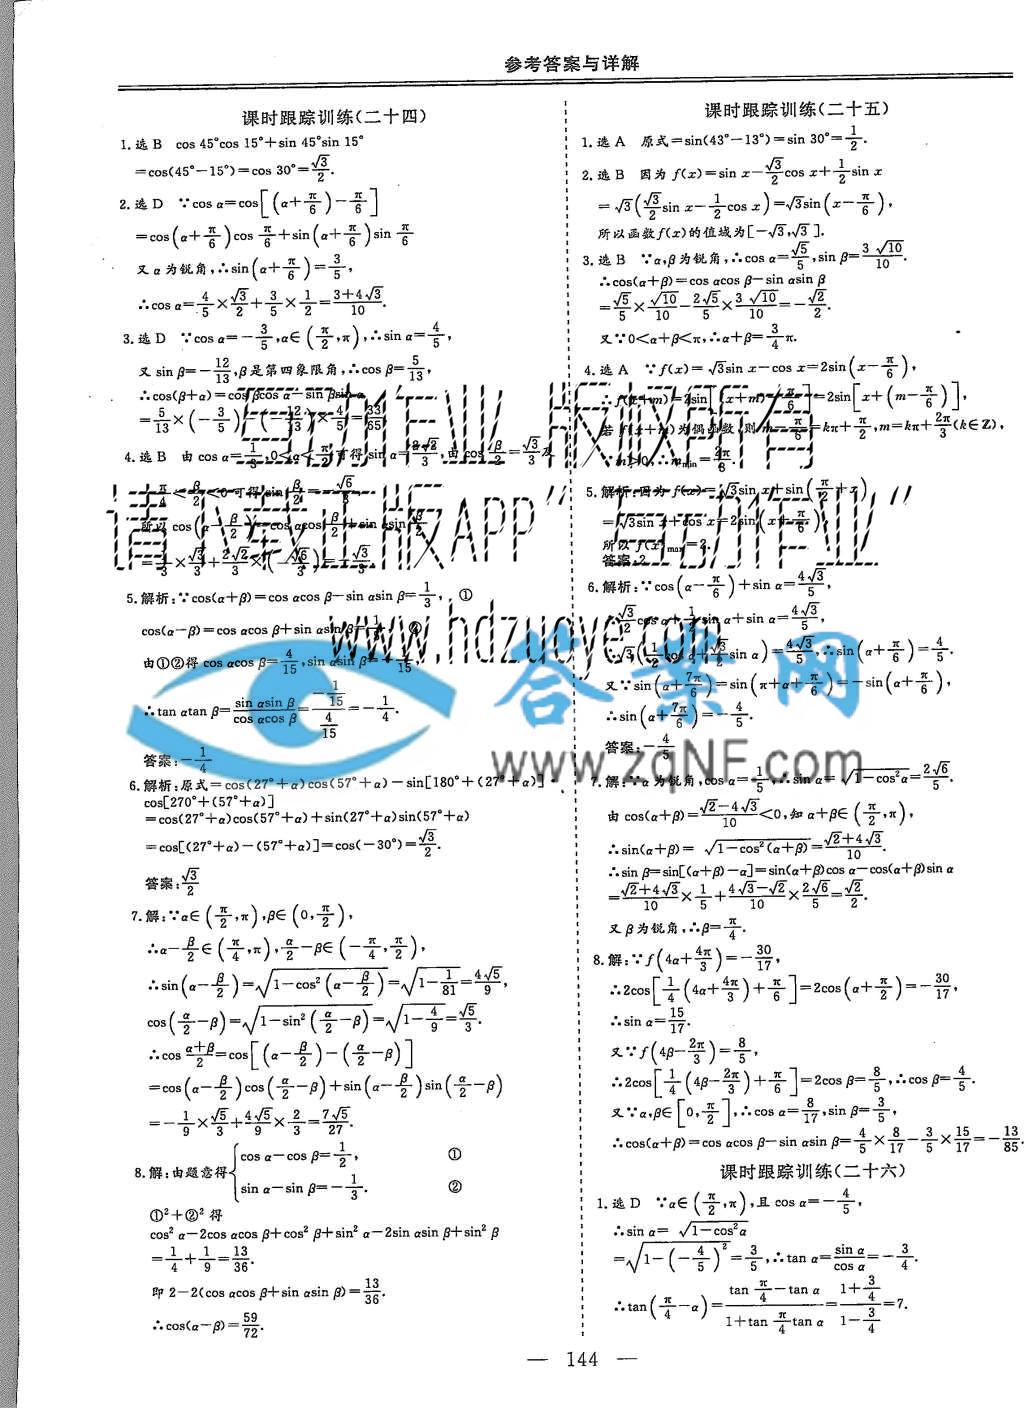 参考答案与详解
课时跟踪训练(二十四)
1.选B cos 45°cos 15°+sin 45°sin 15°
=cos(45°-15°)=cos 30°=√3/2.
2.选D ∵cos α=cos[(α+π/6)-π/6]
=cos(α+π/6)cos π/6+sin(α+π/6)sin π/6
又α为锐角,∴sin(α+π/6)=3/5,
∴cos α=4/5×√3/2+3/5×1/2=(3+4√3)/10.
3.选D ∵cos α=-3/5,α∈(π/2,π),∴sin α=4/5,
又sin β=-12/13,β是第四象限角,∴cos β=5/13,
∴cos(β+α)=cos βcos α-sin βsin α
=5/13×(-3/5)-(-12/13)×4/5=33/65.
4.选B 由cos α=1/3,0<α<π/2,可得sin α=2√2/3,由cos β/2=√3/3及
-π/2<β<0可得sin β/2=-√6/3,
所以cos(α-β/2)=cos αcos β/2+sin αsin β/2
=1/3×√3/3+2√2/3×(-√6/3)=-√3/3.
5.解析:∵cos(α+β)=cos αcos β-sin αsin β=1/3, ①
cos(α-β)=cos αcos β+sin αsin β=1/5, ②
由①②得cos αcos β=4/15,sin αsin β=-1/15,
∴tan αtan β=sin αsin β/cos αcos β=(-1/15)/(4/15)=-1/4.
答案:-1/4
6.解析:原式=cos(27°+α)cos(57°+α)-sin[180°+(27°+α)]·
cos[270°+(57°+α)]
=cos(27°+α)cos(57°+α)+sin(27°+α)sin(57°+α)
=cos[(27°+α)-(57°+α)]=cos(-30°)=√3/2.
答案:√3/2
7.解:∵α∈(π/2,π),β∈(0,π/2),
∴α-β/2∈(π/4,π),α/2-β∈(-π/4,π/2),
∴sin(α-β/2)=√(1-cos²(α-β/2))=√(1-1/81)=4√5/9,
cos(α/2-β)=√(1-sin²(α/2-β))=√(1-4/9)=√5/3.
∴cos (α+β)/2=cos[(α-β/2)-(α/2-β)]
=cos(α-β/2)cos(α/2-β)+sin(α-β/2)sin(α/2-β)
=-1/9×√5/3+4√5/9×2/3=7√5/27.
8.解:由题意得{cos α-cos β=1/2, ①
sin α-sin β=-1/3. ②
①²+②²得
cos² α-2cos αcos β+cos² β+sin² α-2sin αsin β+sin² β
=1/4+1/9=13/36.
即2-2(cos αcos β+sin αsin β)=13/36.
∴cos(α-β)=59/72.
课时跟踪训练(二十五)
1.选A 原式=sin(43°-13°)=sin 30°=1/2.
2.选B 因为f(x)=sin x-√3/2cos x+1/2sin x
=√3(√3/2sin x-1/2cos x)=√3sin(x-π/6),
所以函数f(x)的值域为[-√3,√3].
3.选B ∵α,β为锐角,∴cos α=√5/5,sin β=3√10/10.
∴cos(α+β)=cos αcos β-sin αsin β
=√5/5×√10/10-2√5/5×3√10/10=-√2/2.
又∵0<α+β<π,∴α+β=3/4π.
4.选A ∵f(x)=√3sin x-cos x=2sin(x-π/6),
∴f(x+m)=2sin[(x+m)-π/6]=2sin[x+(m-π/6)],
若f(x+m)为偶函数,则m-π/6=kπ+π/2,m=kπ+2π/3(k∈Z),
∵m>0,∴m min=2π/3.
5.解析:因为f(x)=√3sin x+sin(π/2+x)
=√3sin x+cos x=2sin(x+π/6),
所以f(x)max=2.
答案:2
6.解析:∵cos(α-π/6)+sin α=4√3/5,
∴√3/2cos α+1/2sin α+sin α=4√3/5,
√3(1/2cos α+√3/2sin α)=4√3/5,∴sin(α+π/6)=4/5.
又∵sin(α+7π/6)=sin(π+α+π/6)=-sin(α+π/6),
∴sin(α+7π/6)=-4/5.
答案:-4/5
7.解:∵α为锐角,cos α=1/5,∴sin α=√(1-cos²α)=2√6/5.
由cos(α+β)=(√2-4√3)/10<0,知α+β∈(π/2,π),
∴sin(α+β)=√(1-cos²(α+β))=(√2+4√3)/10.
∴sin β=sin[(α+β)-α]=sin(α+β)cos α-cos(α+β)sin α
=(√2+4√3)/10×1/5+(4√3-√2)/10×2√6/5=√2/2.
又β为锐角,∴β=π/4.
8.解:∵f(4α+4π/3)=-30/17,
∴2cos[1/4(4α+4π/3)+π/6]=2cos(α+π/2)=-30/17,
∴sin α=15/17.
又∵f(4β-2π/3)=8/5,
∴2cos[1/4(4β-2π/3)+π/6]=2cos β=8/5,∴cos β=4/5.
又∵α,β∈[0,π/2],∴cos α=8/17,sin β=3/5,
∴cos(α+β)=cos αcos β-sin αsin β=4/5×8/17-3/5×15/17=-13/85.
课时跟踪训练(二十六)
1.选D ∵α∈(π/2,π),且cos α=-4/5,
∴sin α=√(1-cos²α)
=√(1-(-4/5)²)=3/5,∴tan α=sin α/cos α=-3/4.
∴tan(π/4-α)=(tan π/4-tan α)/(1+tan π/4 tan α)=(1+3/4)/(1-3/4)=7.
— 144 —
“互动作业”版权所有
请下载正版APP“互动作业”
www.hdzuoye.com
答案网
www.zqNF.com